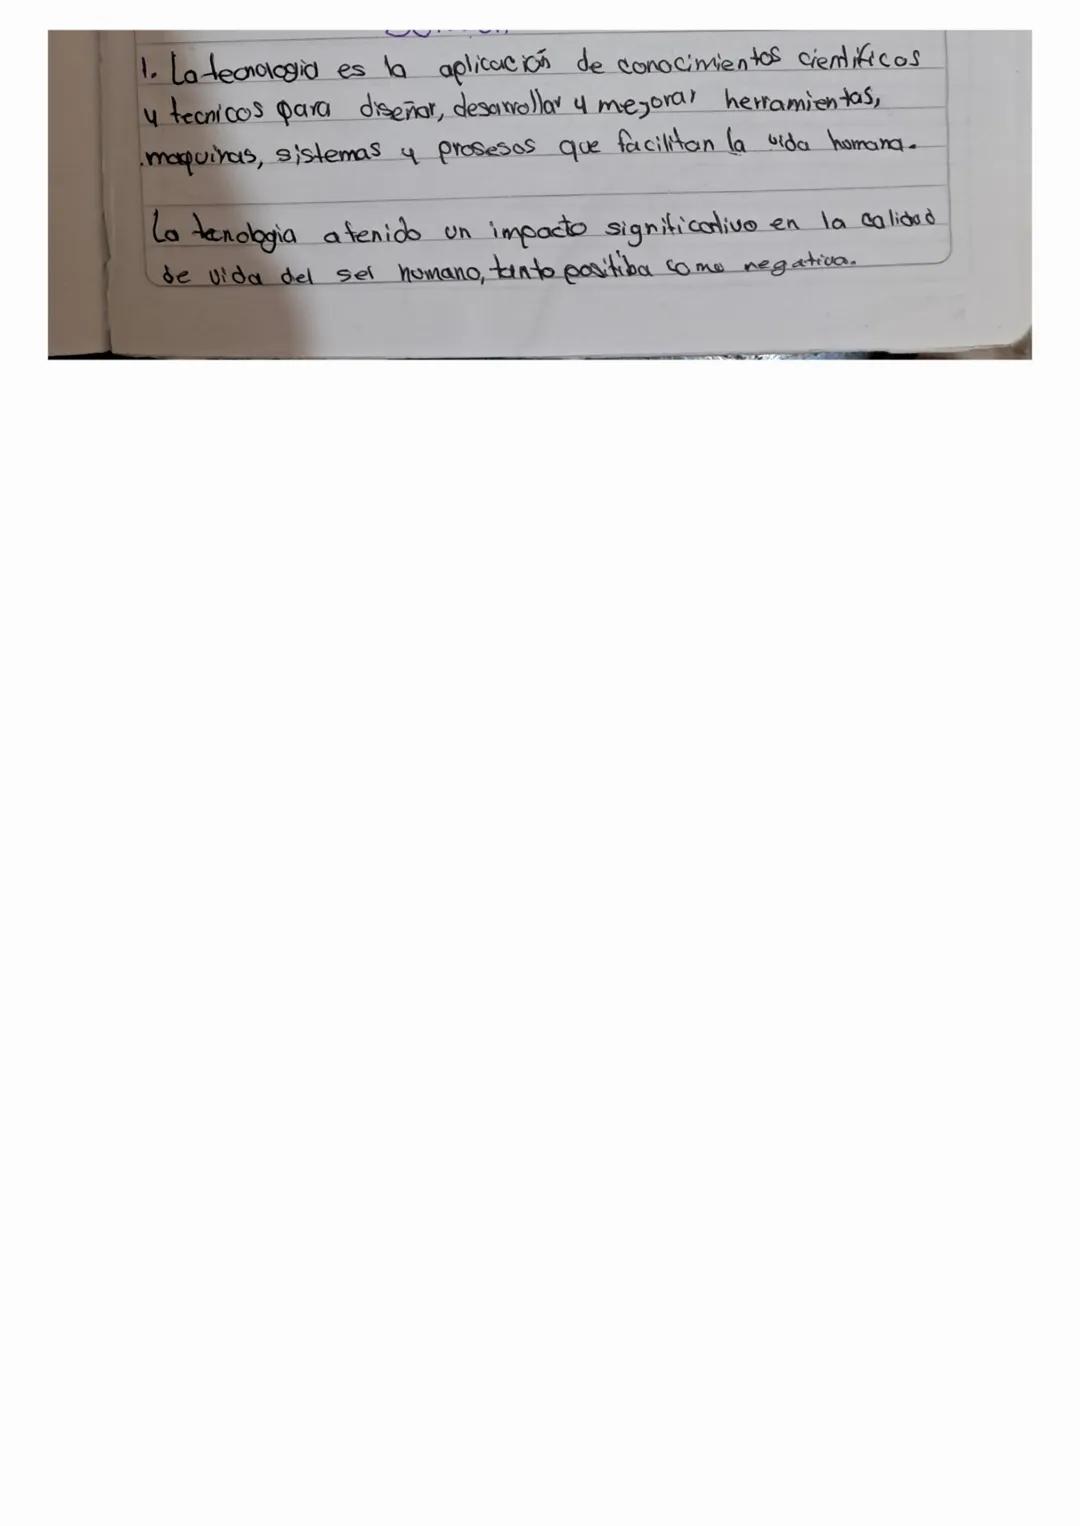 1. La tecnologia es la aplicación de conocimientos cientificos
y tecnicos para diseñar, desarrollar y mejorar herramientas,
maquinas, sistemas y prosesos que facilitan la vida homana.
La tenologia a tenido un impacto significativo en la calidad
de vida del ser humano, tanto positiba como negativa.